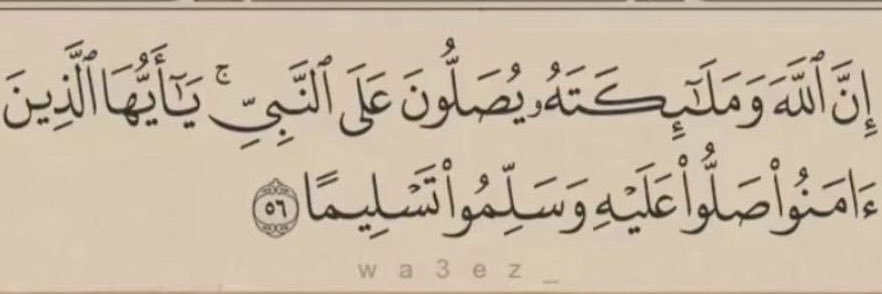 إِنَّ ٱللَّهَ وَمَلَٰٓئِكَتَهُۥ يُصَلُّونَ عَلَى ٱلنَّبِيِّۚ يَٰٓأَيُّهَا ٱلَّذِينَ
ءَامَنُواْ صَلُّواْ عَلَيْهِ وَسَلِّمُواْ تَسْلِيمًا ٥٦
wa3ez_